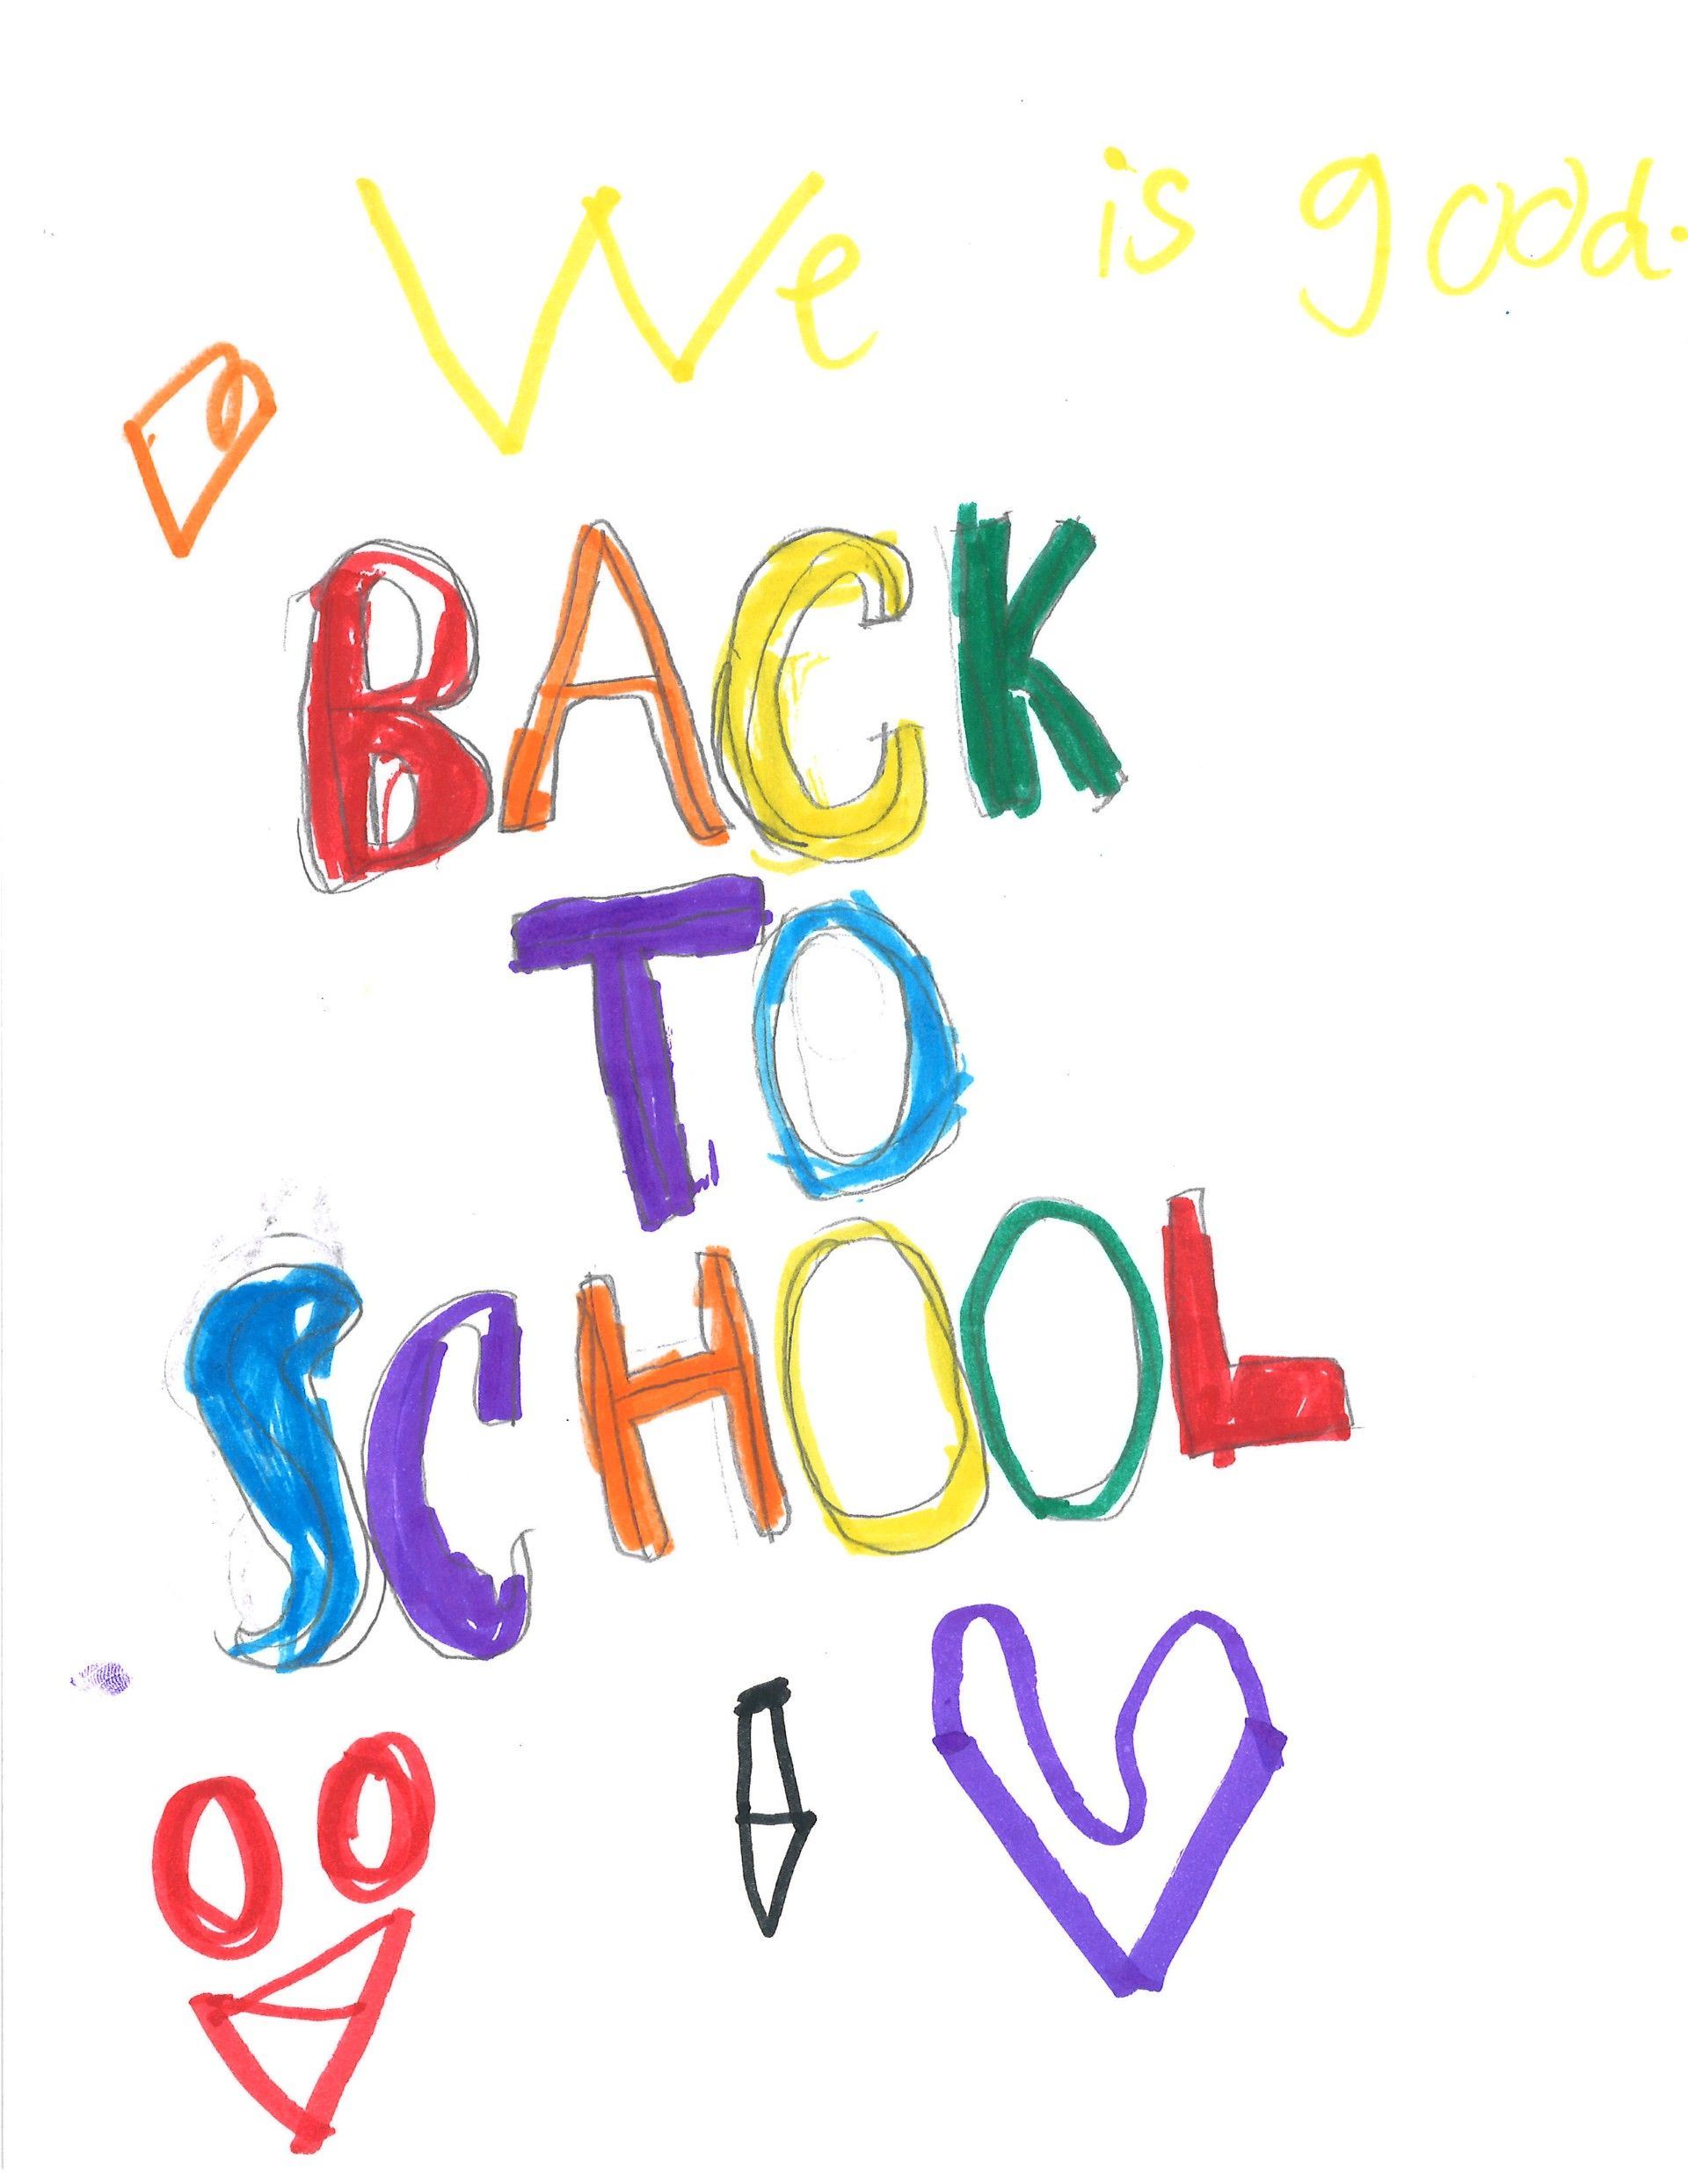 We is good.
BACK
TO
SCHOOL